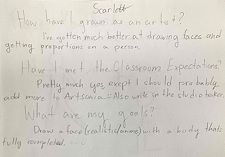 Scarlett
How have I grown as an artist?
I've gotten much better at drawing faces and
getting proportions on a person.
Have I met the Classroom Expectations?
Pretty much yes exept I should probably
add more to Artsonia. Also write in the studio
What are my goals?
Draw a face (realistic/anime) with a body thats
fully completed.